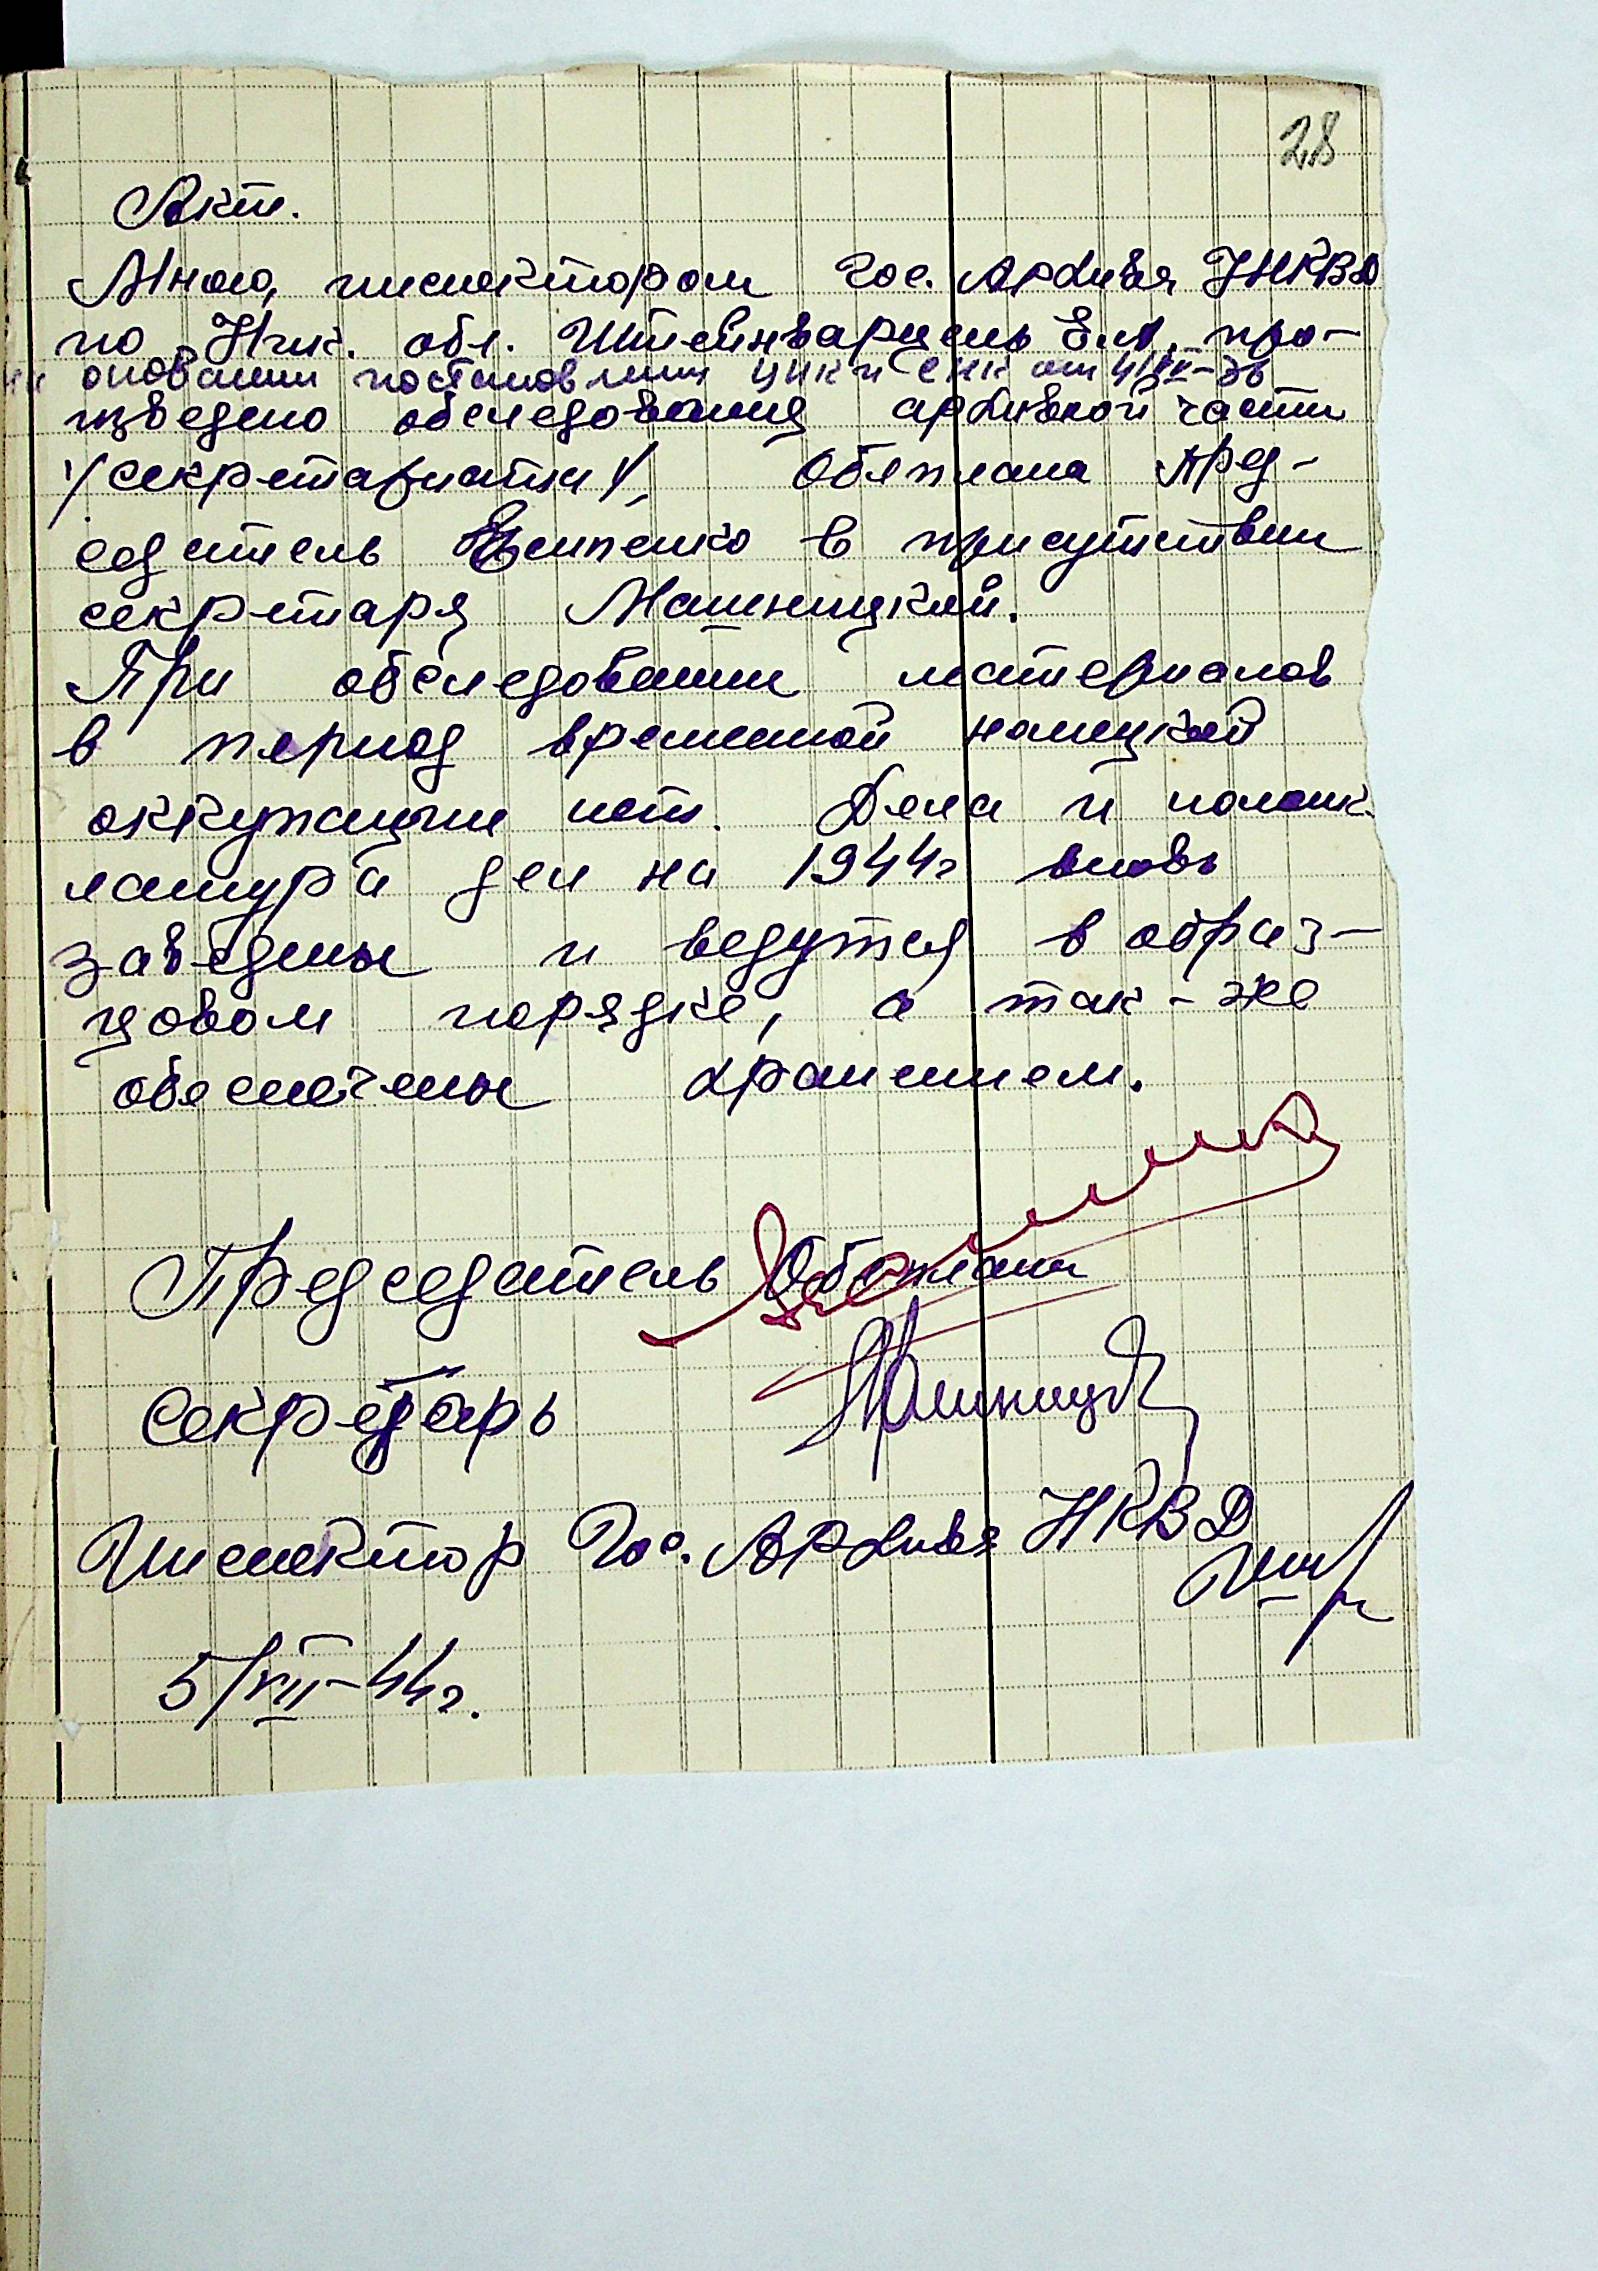 28
Акт.
Мною, инспектором Гос. Архива УНКВД
по Ник. обл. Штейнварцель Е.А. про-
на основании постановления ЦИК и СНК от
изведено обследования архивной части
/секретариата/, Облплана Пред-
седатель в присутствии
секретаря Машницкой.
При обследовании материалов
в период временной немецкой
оккупации нет. Дела и номенк-
латура дел на 1944г вновь
заведены и ведутся в образ-
цовом порядке, а так-же
обеспечены хранением.
Председатель Облплана
Секретарь
Инспектор Гос. Архива НКВД
5/VIII-44г.